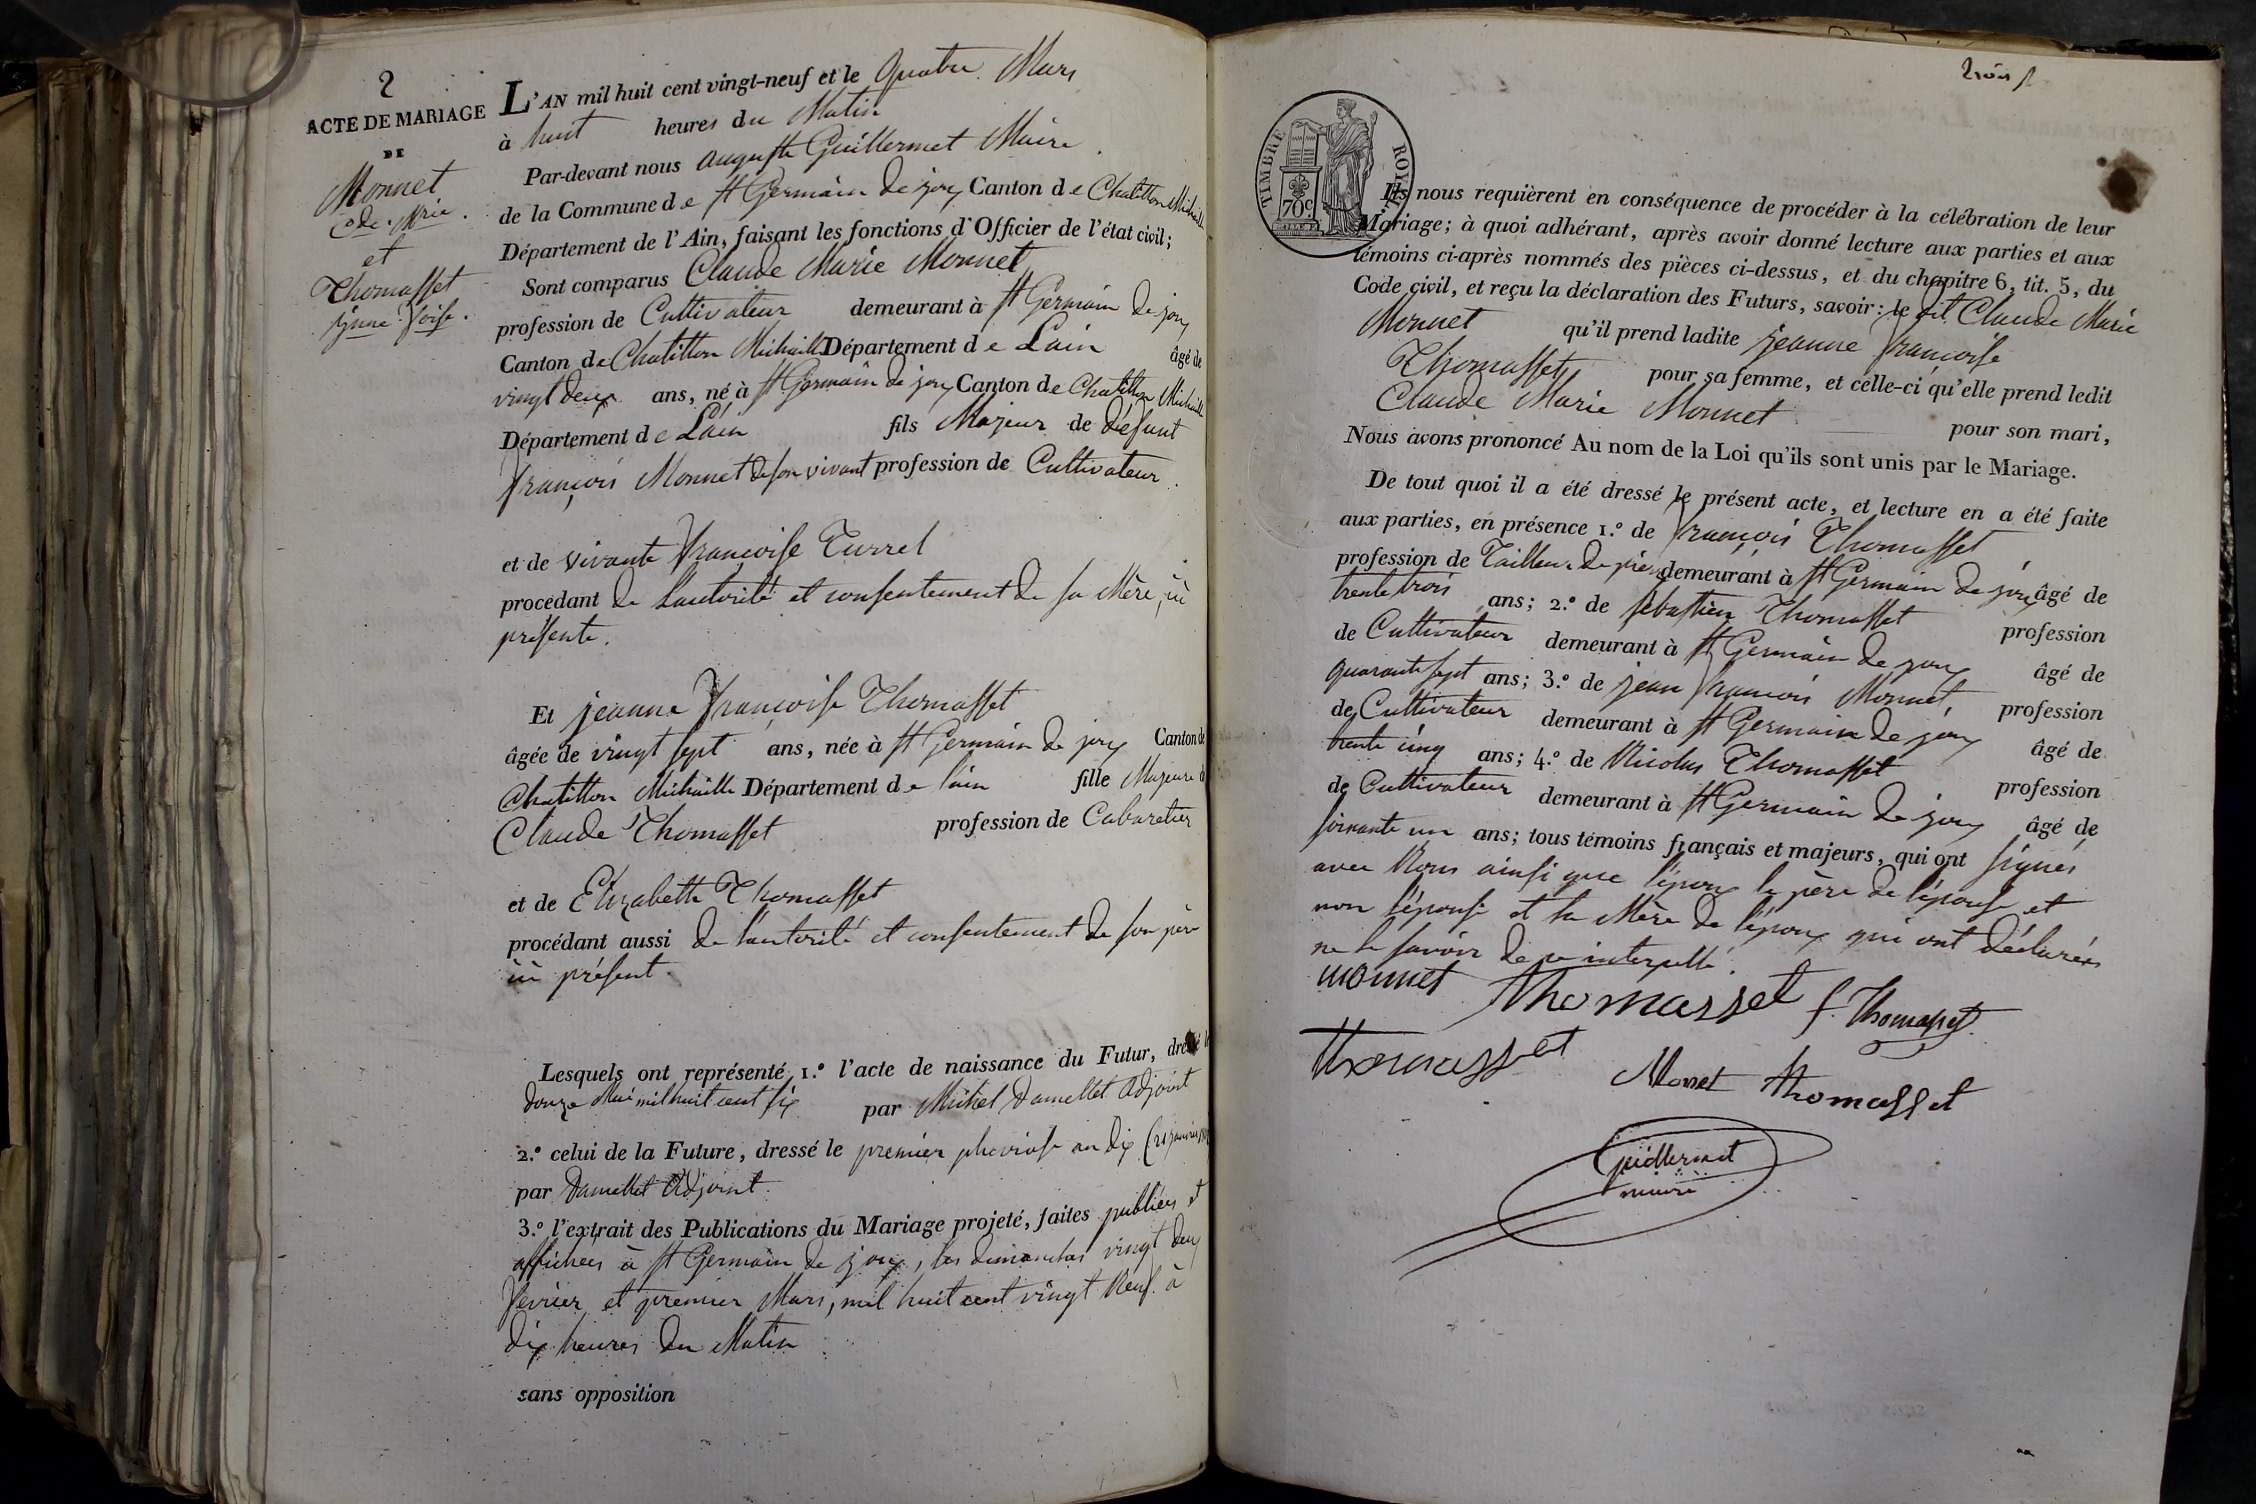 2
ACTE DE MARIAGE
DE
Monnet
Cde. Mrie.
et
Thomasset
jnne. foise.
L'AN mil huit cent vingt-neuf et le quatre Mars
à huit heures du Matin
Par-devant nous auguste Guillermet Maire
de la Commune de St Germain de joux Canton de Chatillon Michaille
Département de l'Ain, faisant les fonctions d'Officier de l'état civil;
Sont comparus Claude Marie Monnet
profession de Cultivateur demeurant à St Germain de joux
Canton de Chatillon Michaille Département de Lain âgé de
vingt deux ans, né à St Germain de joux Canton de Chatillon Michaille
Département de Lain fils Majeur de défunt
françois Monnet de son vivant profession de Cultivateur.
et de vivante françoise Turrel
procédant de Lautorité et consentement de sa Mère, ici
présente.
Et jeanne françoise Thomasset
âgée de vingt sept ans, née à St Germain de joux Canton de
Chatillon Michaille Département de lain fille Majeure de
Claude Thomasset profession de Cabaretier
et de Elizabeth Thomasset
procédant aussi de Lautorité et consentement de son père
ici présent.
Lesquels ont représenté, 1.° l'acte de naissance du Futur, dressé le
douze Mai mil huit cent six par Michel Tamettet adjoint
2.° celui de la Future, dressé le premier pluviose an dix (21 janvier
par adjoint
3.° l'extrait des Publications du Mariage projeté, faites publiées et
affichées à St Germain de joux, les dimanches vingt deux
fevrier et premier Mars, mil huit cent vingt Neuf à
dix heures du Matin
sans opposition
trois
TIMBRE ROYAL
70c
Ils nous requièrent en conséquence de procéder à la célébration de leur
Mariage; à quoi adhérant, après avoir donné lecture aux parties et aux
témoins ci-après nommés des pièces ci-dessus, et du chapitre 6, tit. 5, du
Code civil, et reçu la déclaration des Futurs, savoir: le dit Claude Marie
Monnet qu'il prend ladite jeanne françoise
Thomasset, pour sa femme, et celle-ci qu'elle prend ledit
Claude Marie Monnet pour son mari,
Nous avons prononcé Au nom de la Loi qu'ils sont unis par le Mariage.
De tout quoi il a été dressé le présent acte, et lecture en a été faite
aux parties, en présence 1.° de françois Thomasset
profession de Tailleur de pierre demeurant à St Germain de joux âgé de
trente trois ans; 2.° de sébastien Thomasset profession
de Cultivateur demeurant à St Germain de joux âgé de
quarante sept ans; 3.° de jean françois Monnet, profession
de Cultivateur demeurant à St Germain de joux âgé de
trente cinq ans; 4.° de Nicolas Thomasset profession
de Cultivateur demeurant à St Germain de joux âgé de
soixante un ans; tous témoins français et majeurs, qui ont signés
avec Nous ainsi que l'époux le père de l'épouse et
non l'épouse et la Mère de l'époux qui ont déclarées
ne le savoir de ce interpellé.
monnet thomasset f. thomasset
thomasset Monet thomasset
Guillermet
maire